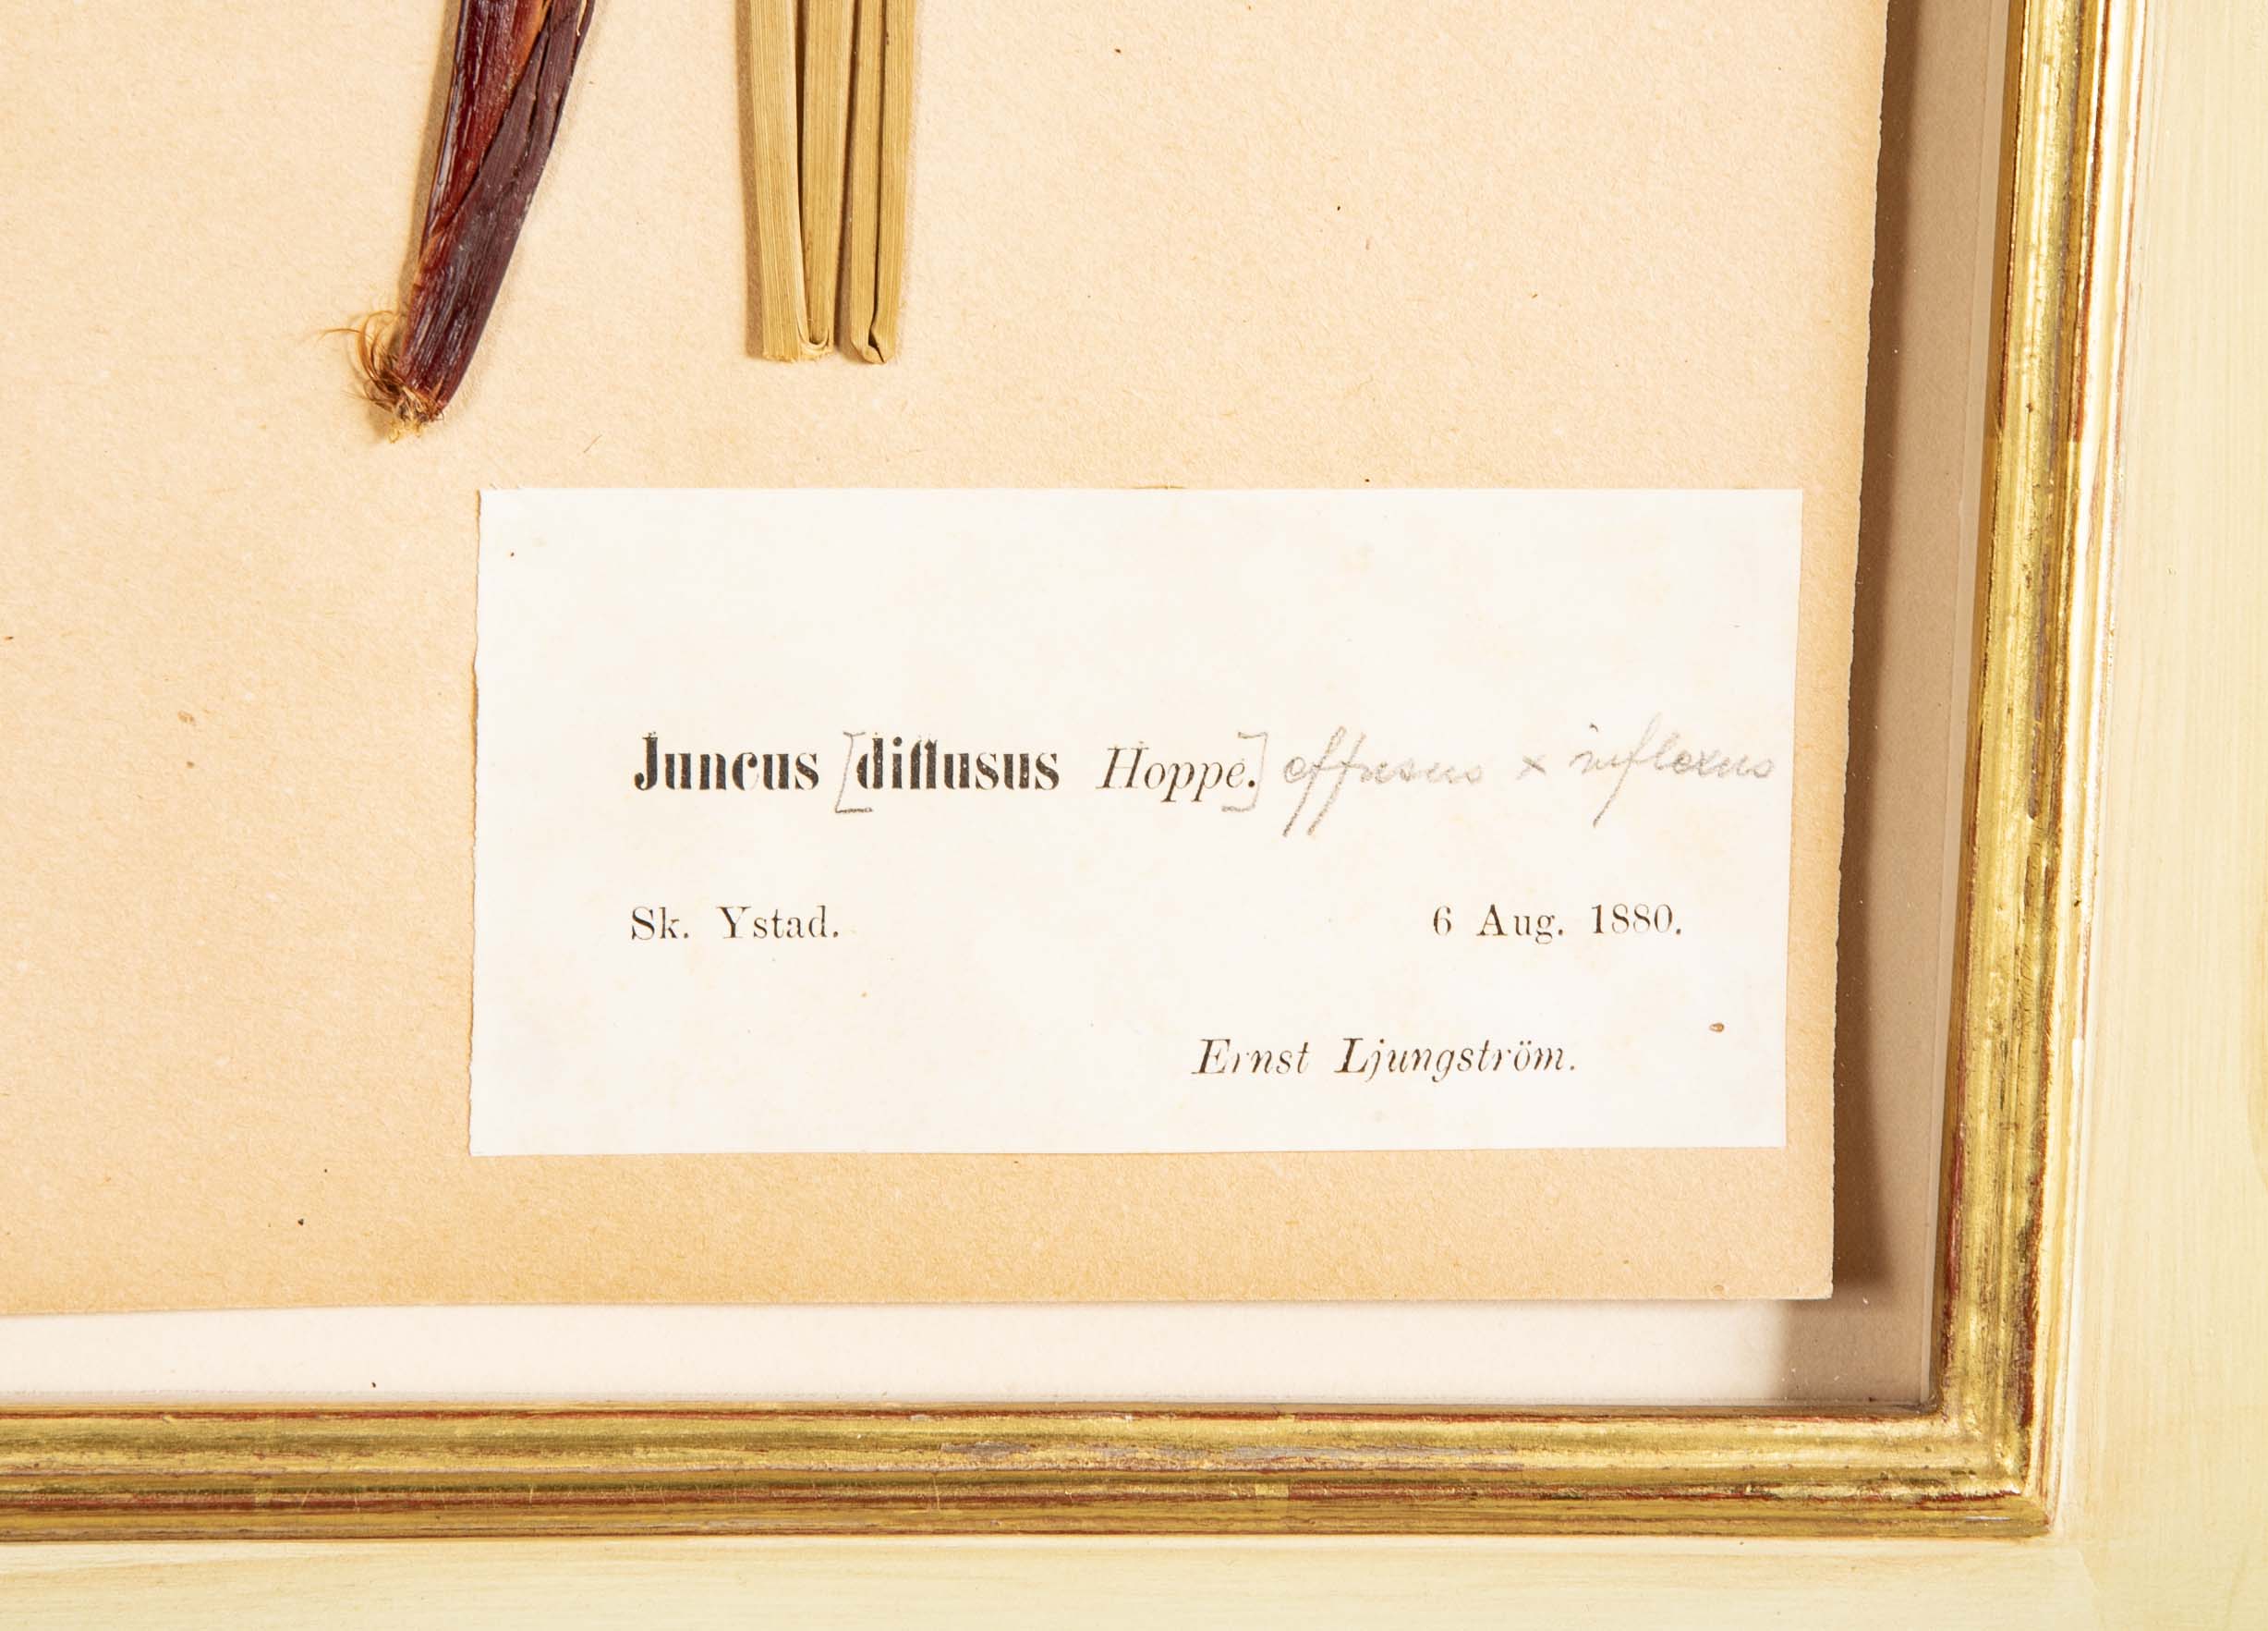 Juncus [diffusus Hoppe.] effusus x inflexus
Sk. Ystad. 6 Aug. 1880.
Ernst Ljungström.